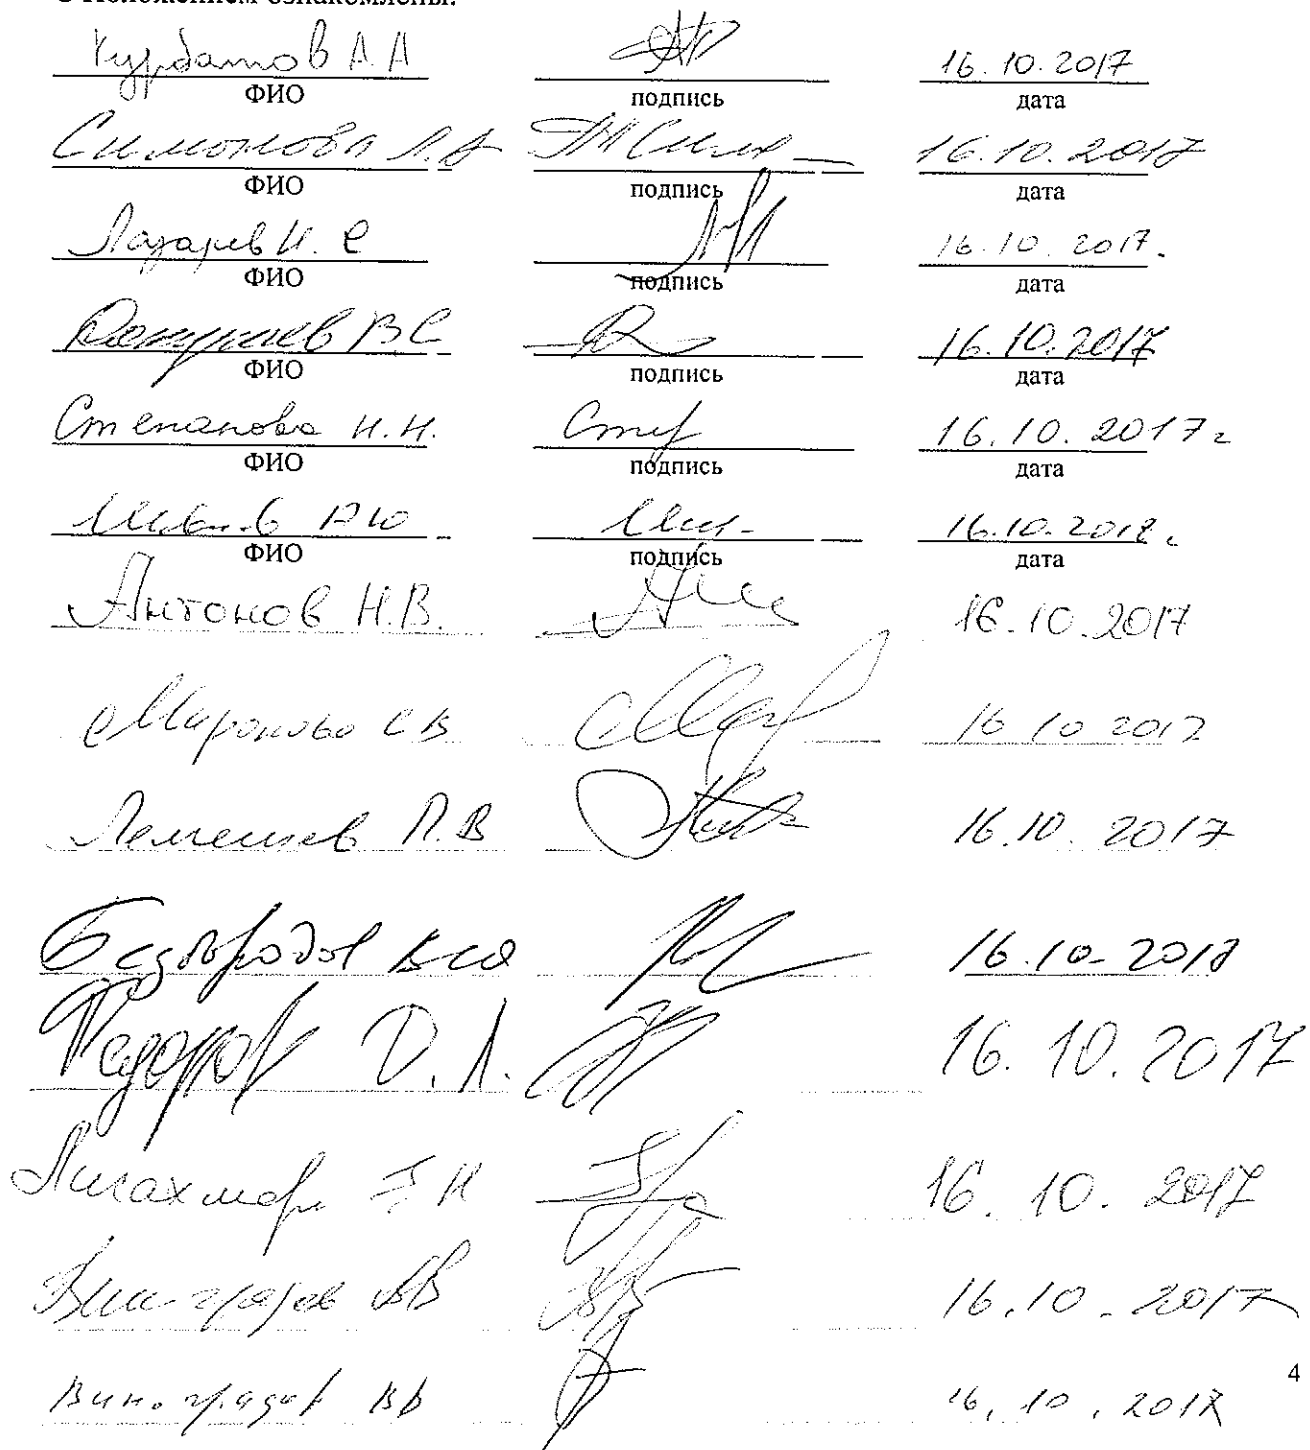 С Положением ознакомлены:
Курбатов А.А 16.10.2017
ФИО подпись дата
Симонова Л.А 16.10.2017
ФИО подпись дата
Лазарев И.С 16.10.2017.
ФИО подпись дата
ВС 16.10.2017
ФИО подпись дата
Степанова Н.Н. 16.10.2017г
ФИО подпись дата
АЮ 16.10.2017г
ФИО подпись дата
Антонов Н.В. 16.10.2017
Миронова СВ 16 10 2017
Лемешев П.В 16.10.2017
16.10.2017
Д.Л. 16.10.2017
16.10.2017
Виноградов АВ 16.10.2017
Виноградов ВВ 16.10.2017
4